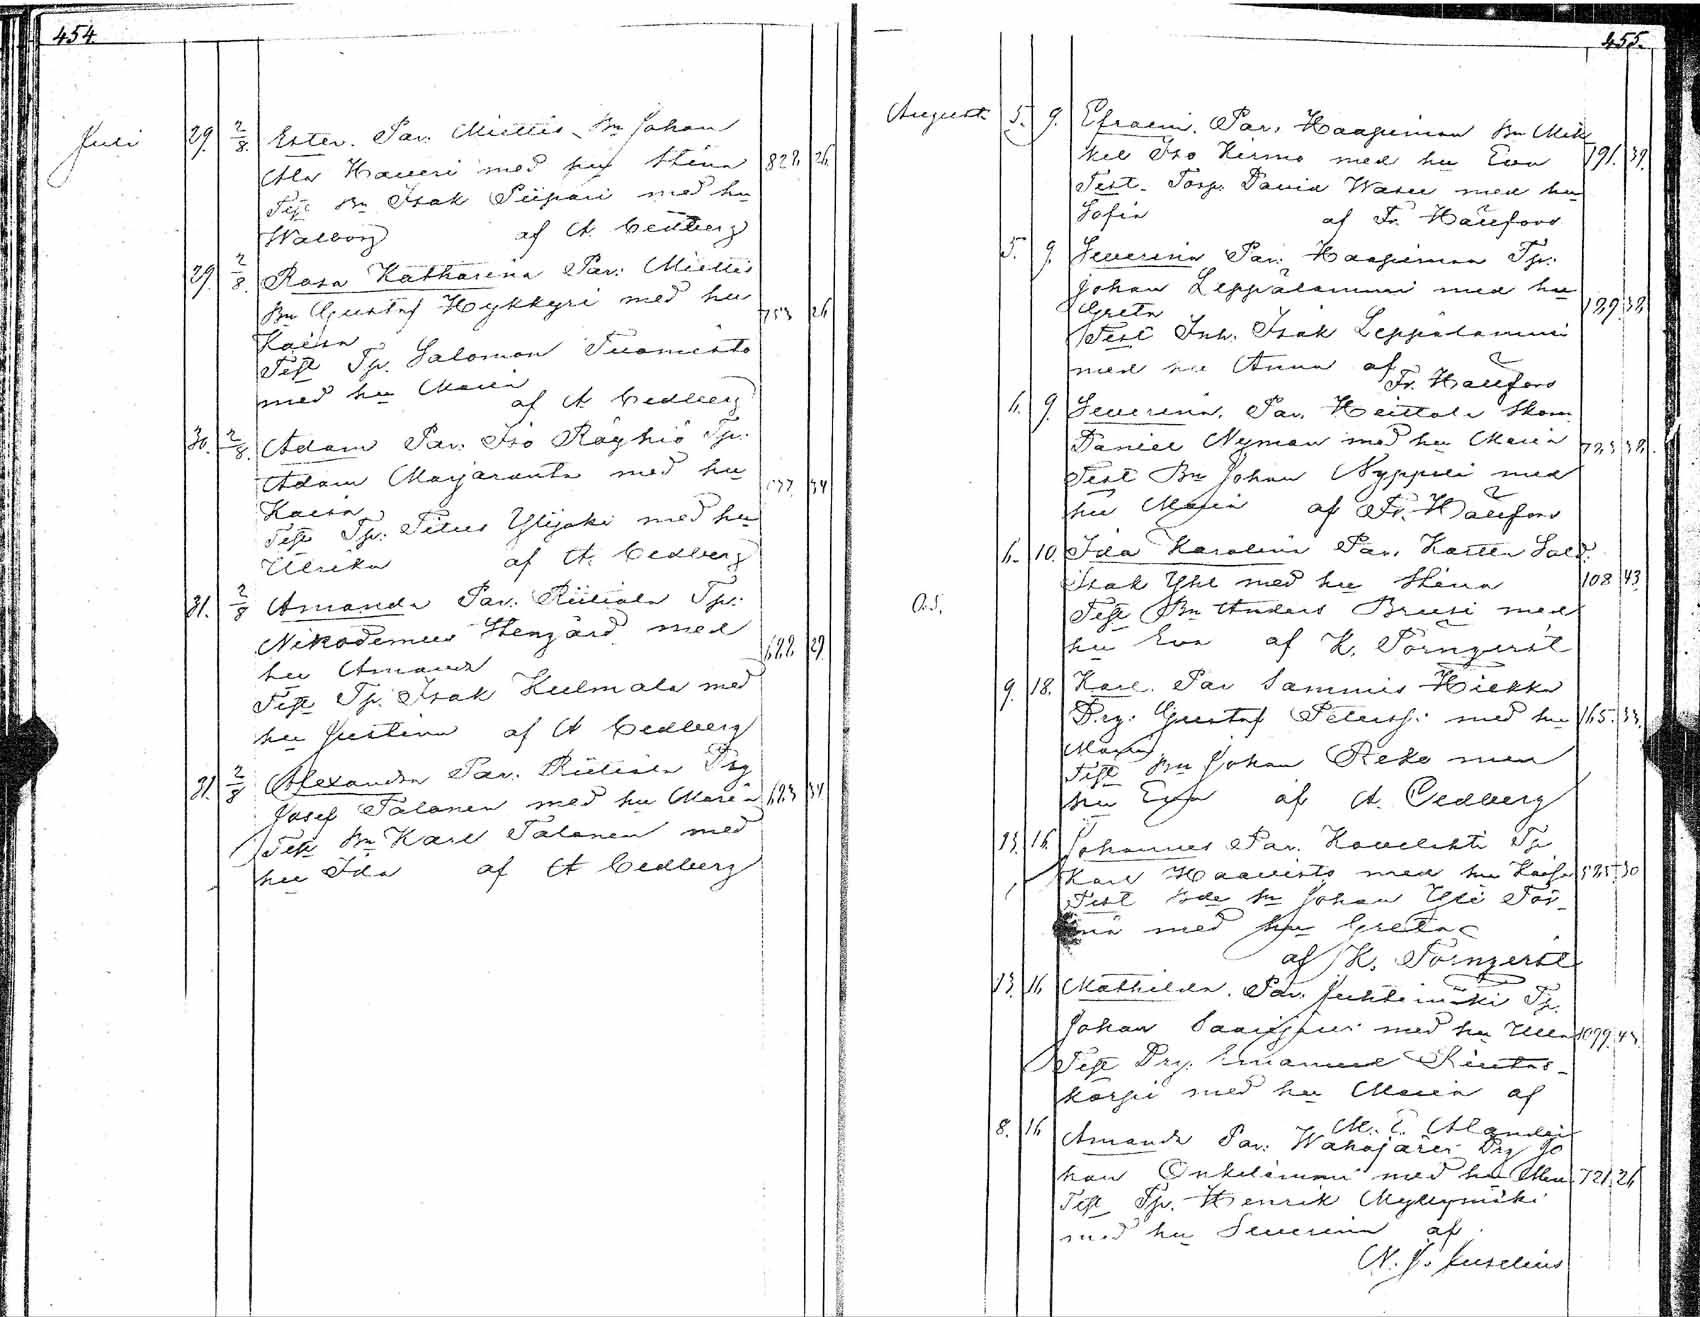 454
Juli 29. 2/8. Ester. Par. Miettis Bn Johan
Ala Haveri med hu Stina 828. 26.
Test Bn Isak Piipari med hu
Walborg af A. Cedberg
29. 2/8. Rosa Katharina Par: Miettis
Bn Gustaf Hykkyri med hu 753 26
Kaisa
Test Tp. Salomon Tuomisto
med hu Maria
af A. Cedberg
30. 2/8. Adam Par. Iso Röyhiö Tp.
Adam Marjaranta med hu 34
Kaisa
Test Tp. Titus Ylijoki med hu
Ulrika af A. Cedberg
31. 2/8 Amanda Par. Riitiala Tp:
Nikodemus Stengård med 622. 29
hu Amanda
Test Tp. Isak Kulmala med
hu Justina af A Cedberg
31. 2/8 Alexandra Par. Riitiala Drg
Josef Talonen med hu Maria 623 34
Test Bn Karl Talonen med
hu Ida af A Cedberg
455.
August 5. 9. Efraim. Par. Haapimaa Bn Mik
kel Iso Kirmo med hu Eva 191. 39.
Test. Torp. David Wasu med hu
Sofia af Fr. Hallfors
5. 9. Severina Par. Haapimaa Tp.
Johan Leppälammi med hu
Greta 129. 32.
Test Inh. Isak Leppälammi
med hu Anna af
Fr. Hallfors
6. 9. Severina. Par. Heittola Skom.
Daniel Nyman med hu Maria 723 32.
Test Bn Johan Nyppeli med
hu Maria af Fr. Hallfors
6. 10. Ida Karolina Par. Karttu Sold.
Isak Yhl med hu Stina 108 43
O.S. Test Bn Anders Bruusi med
hu Eva af K. Törnqvist
9. 18. Karl. Par Sammis Hiekka
Drg. Gustaf Petersf. med hu 165. 33.
Maria
Test Bn Johan Reko med
hu Eva af A. Cedberg
13. 16. Johannes Par. Kovelahti Tp
Karl Haavisto med hu Kaisa 525. 30
Test Bde Sn Johan Yli Tör-
mä med hu Greta
af K. Törnqvist
13. 16 Mathilda. Par. Juhtimäki Tp.
Johan Saarijärvi med hu Ulla 1099. 43.
Test Drg. Emanuel Rintas-
korpi med hu Maria af
M. E. Alander
8. 16 Amanda Par. Wahojärvi Drg Jo
han Onkilammi med hu 721 26
Test Tp. Henrik Myllymäki
med hu Severina af
N. J. Juselius